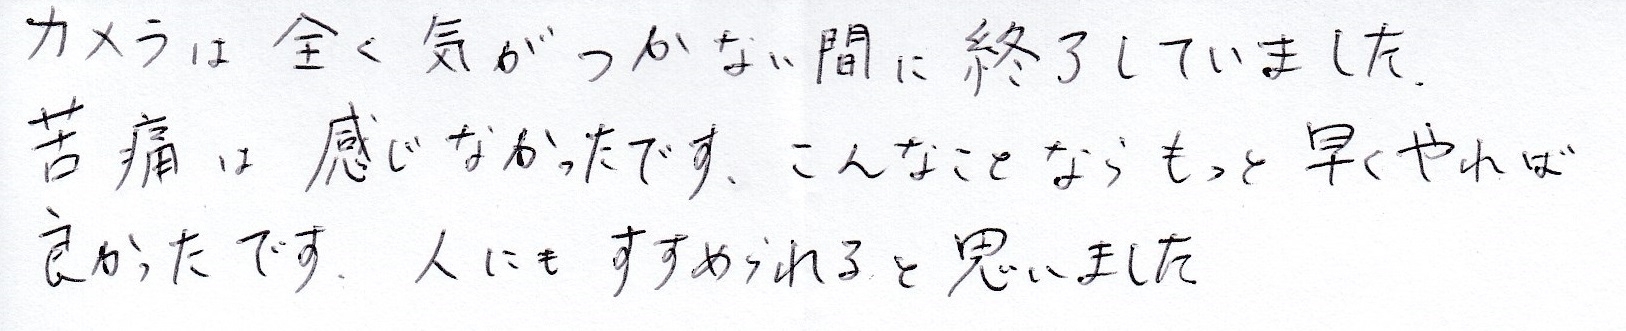 カメラは全く気がつかない間に終了していました.
苦痛は感じなかったです、こんなことならもっと早くやれば
良かったです. 人にもすすめられると思いました